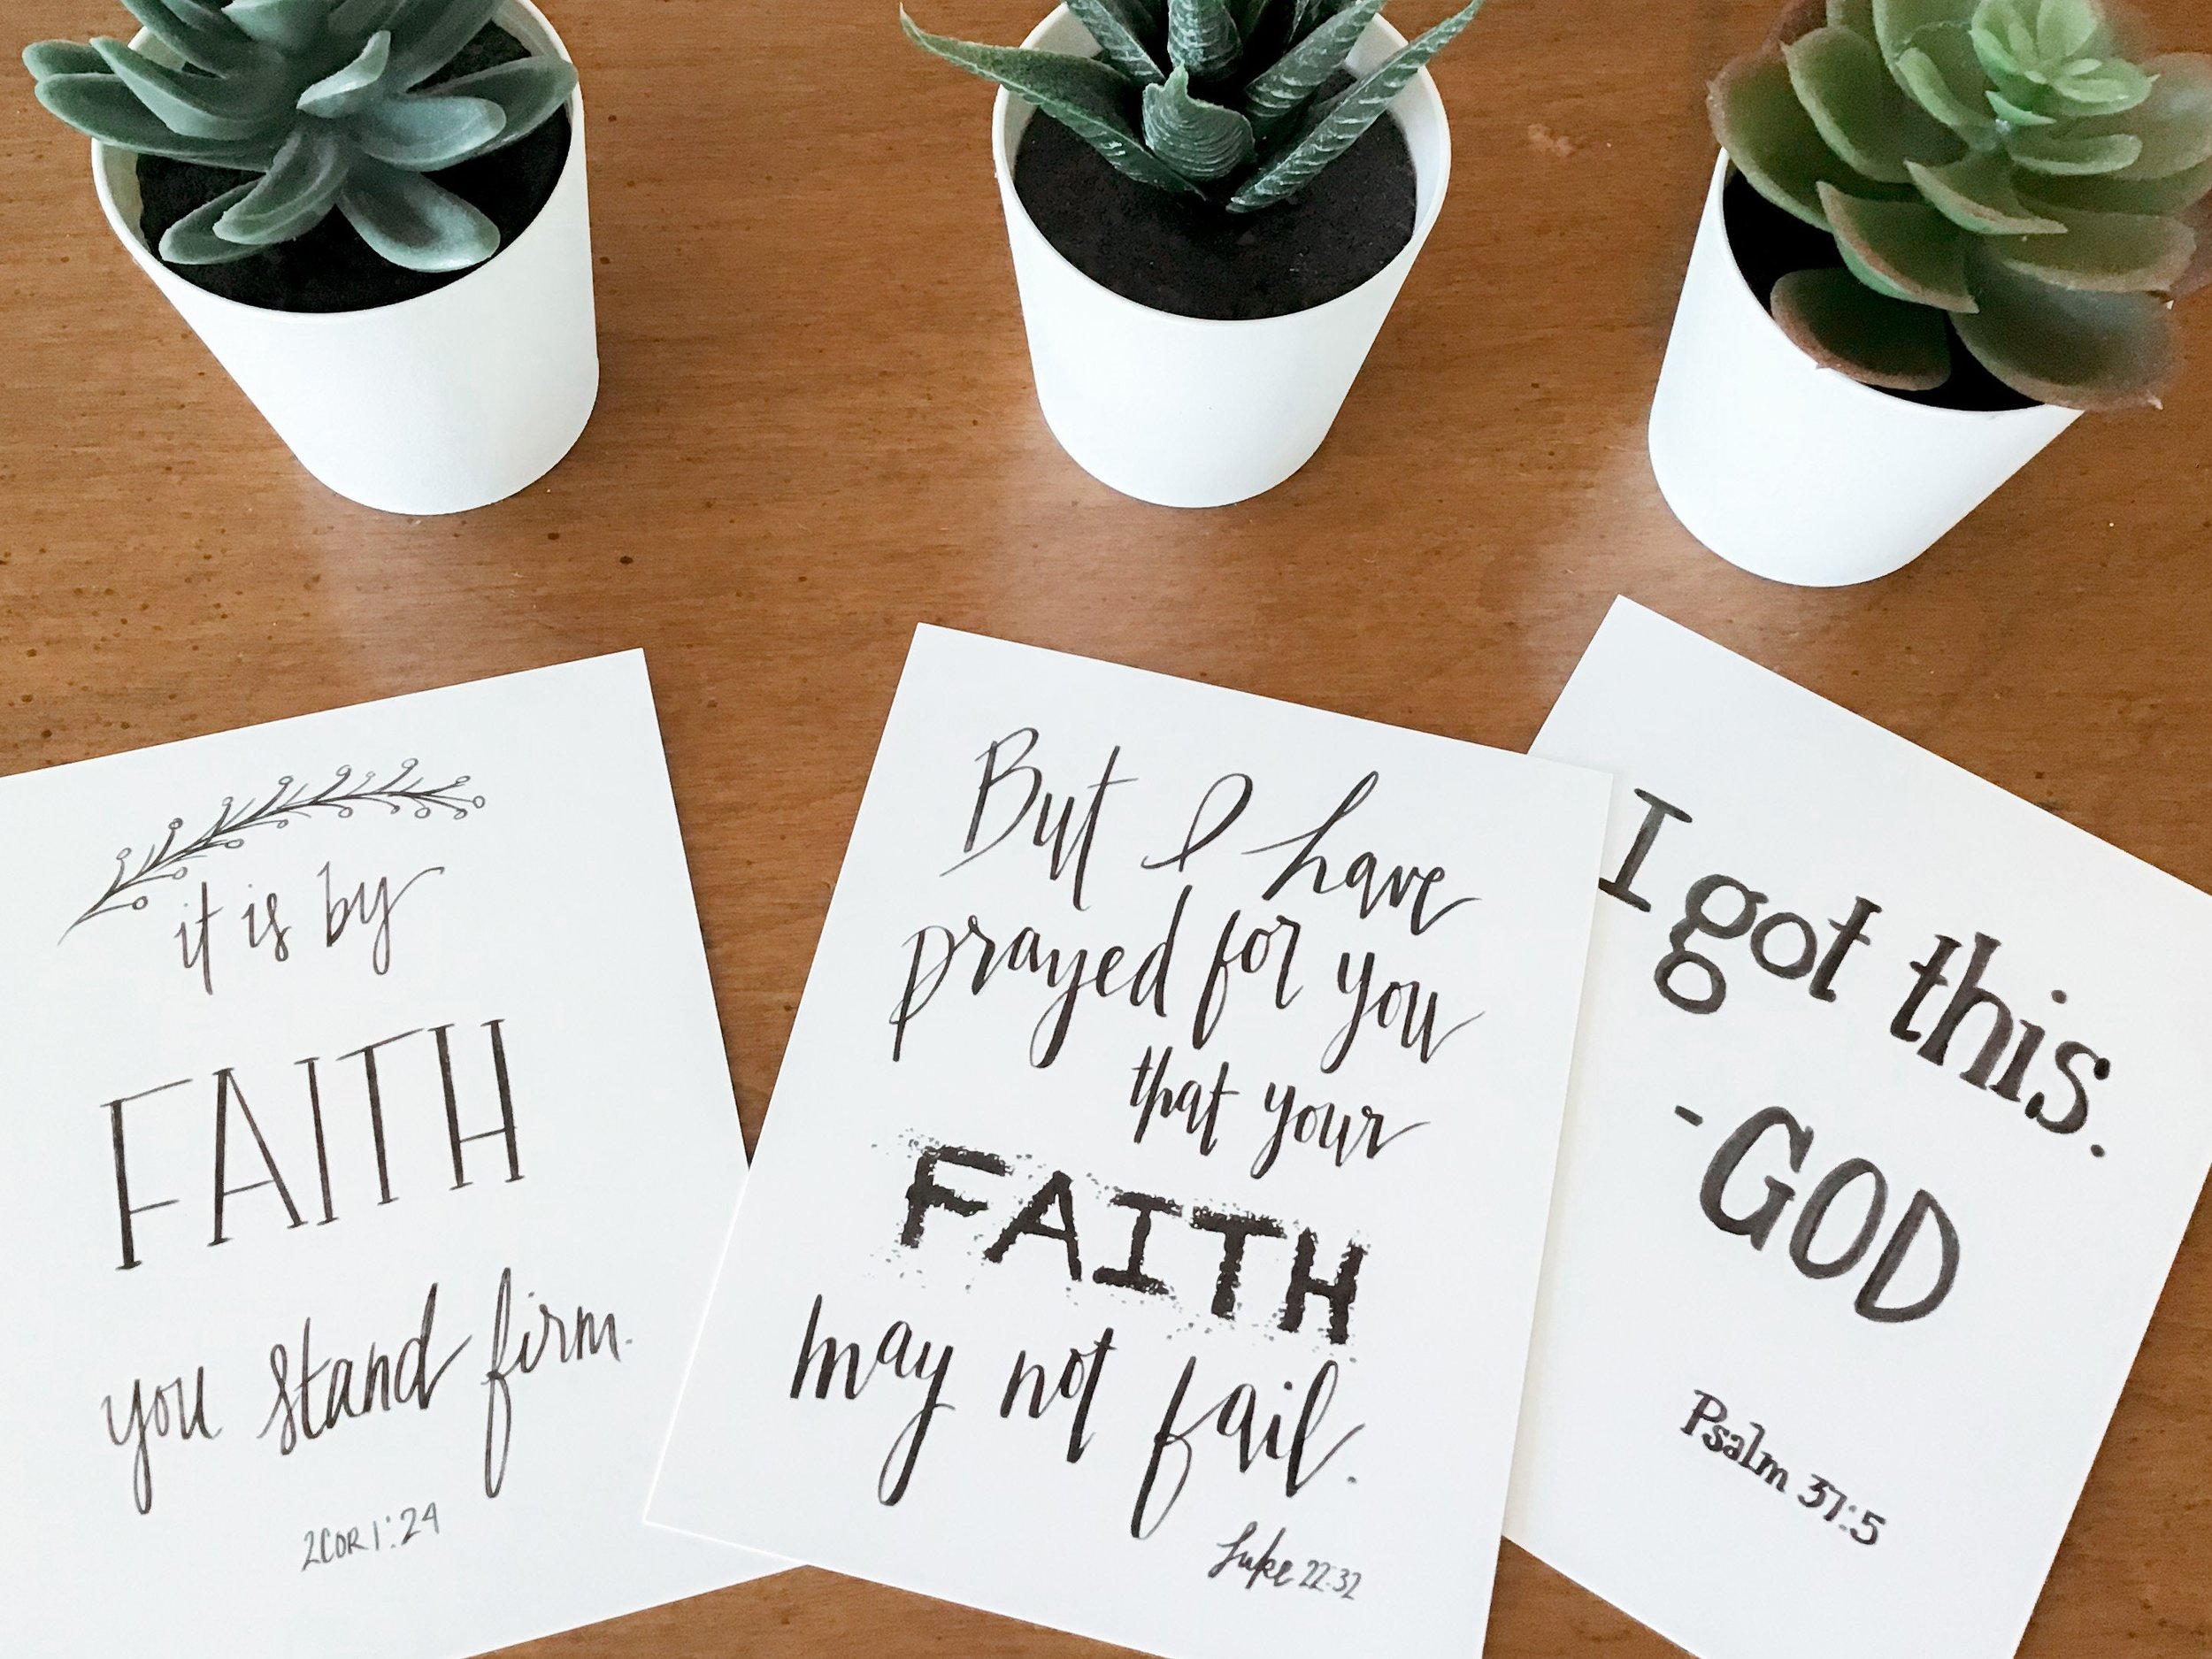 it is by
FAITH
you stand firm.
2COR 1:24
But I have
prayed for you
that your
FAITH
may not fail.
Luke 22:32
I got this.
-GOD
Psalm 37:5